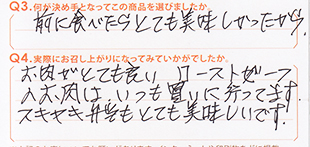 Q3.何が決め手となってこの商品を選びましたか
前に食べたらとても美味しかったから.
Q4.実際にお召し上がりになってみていかがでしたか.
お肉がとても良い ローストビーフ
のお肉は、いつも買いに行ってます.
スキヤキ弁当もとても美味しいです.